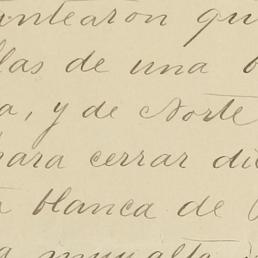 ntearon qu
llas de una
a, y de Norte
para cerrar di
blanca de
muy alta